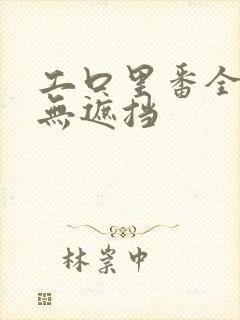 工口里番全
無遮挡
林崇中